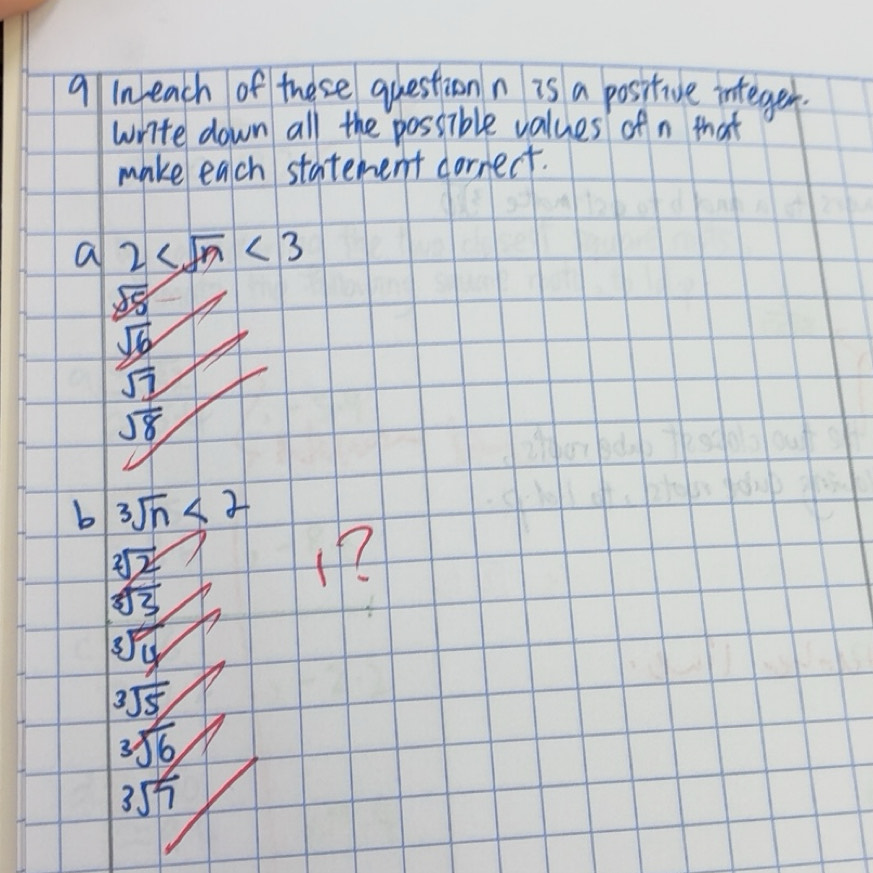 9 In each of these question n is a positive integer.
Write down all the possible values of n that
make each statement correct.
a 2 < √n < 3
√5
√6
√7
√8
b ³√n < 2
³√2
³√3
³√4
³√5
³√6
³√7
1?